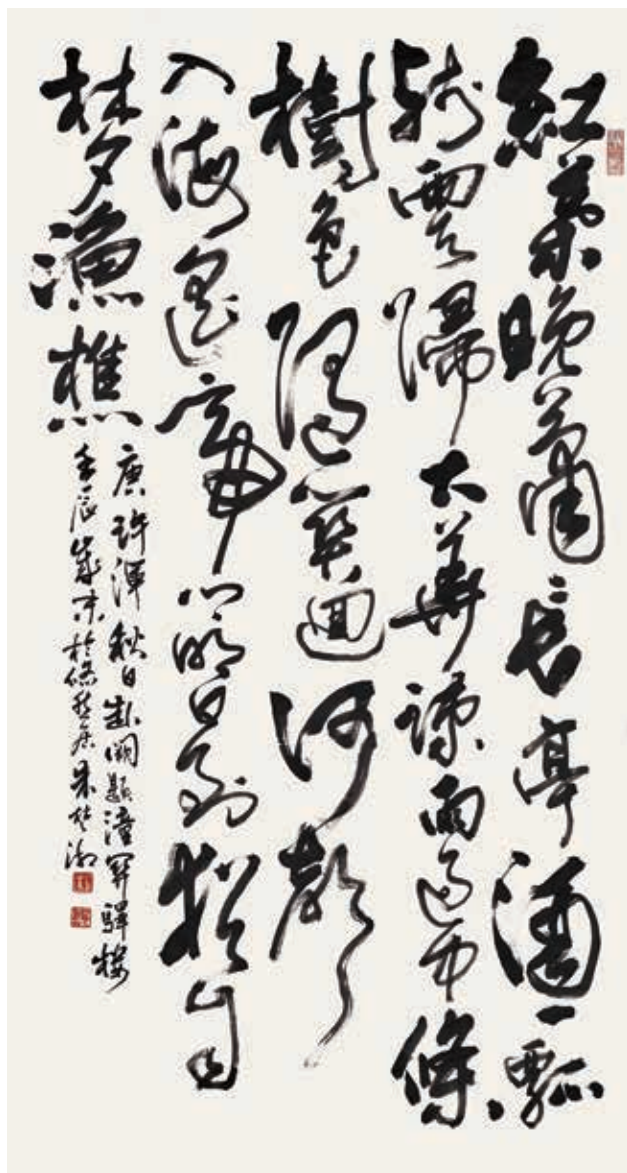 紅葉晚蕭〻長亭酒一瓢
殘雲歸太華疎雨過中條
樹色隨關迥河聲
入海遙帝鄉明日到猶自
梦漁樵
唐許渾秋日赴闕題潼關驛楼
壬辰歲末於居朱